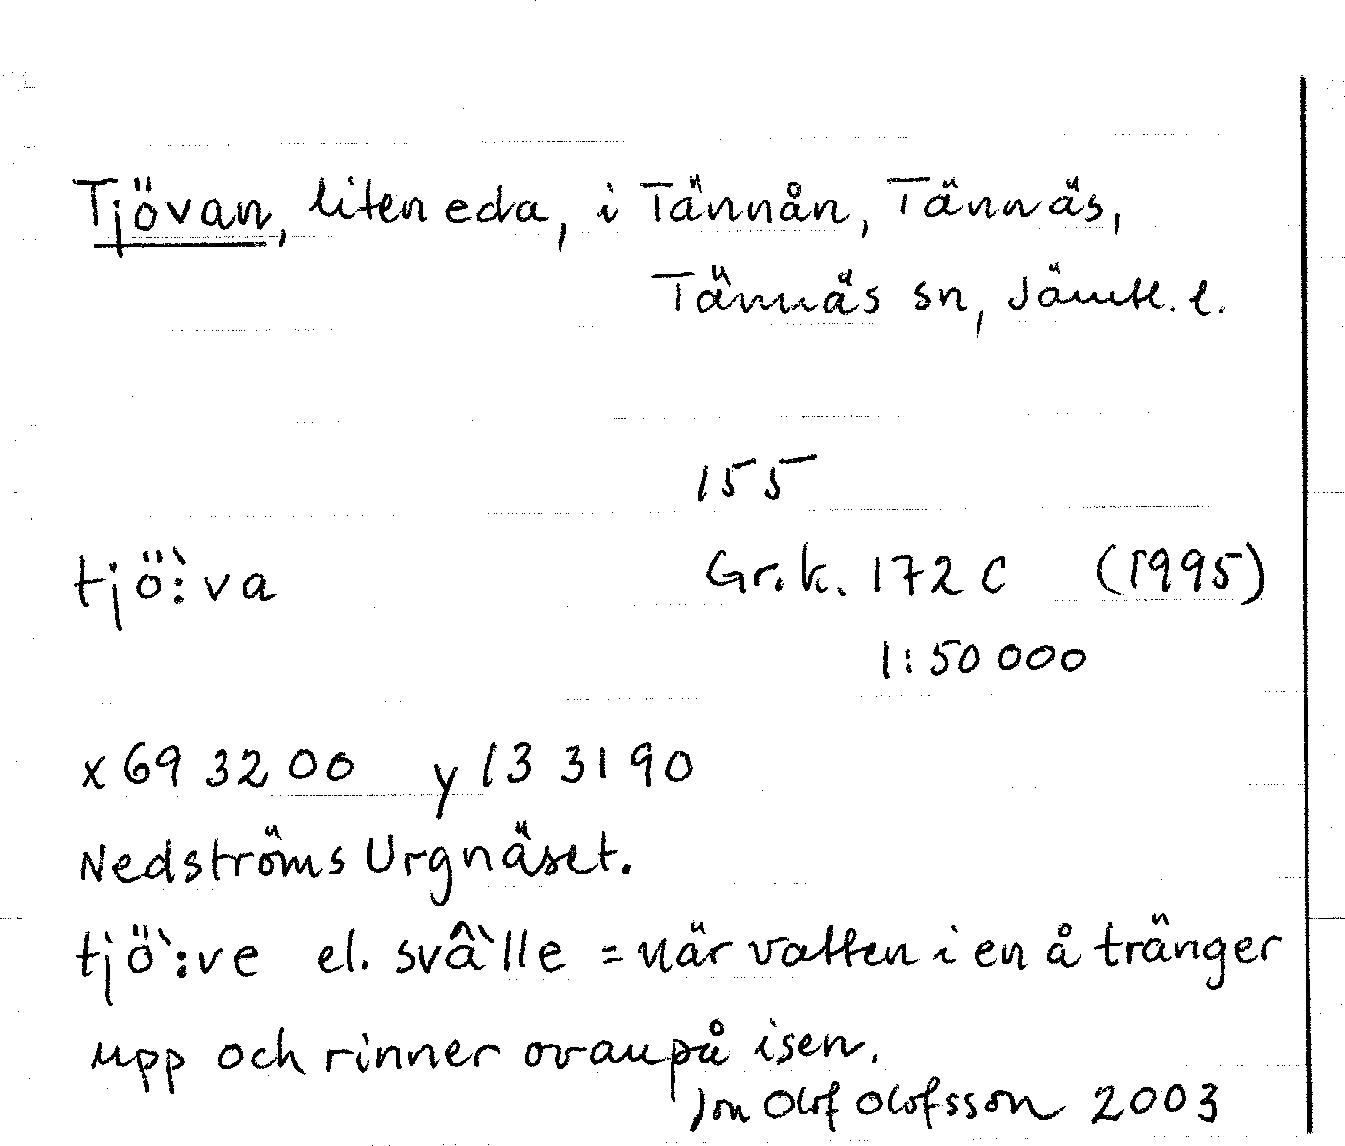 Tjövan, liten eda, i Tännån, Tännäs,
Tännäs sn, Jämtl. l.
155
tjö̀:va Gr.k. 172 C (1995)
1:50 000
x 69 32 00 y 13 31 90
Nedströms Urgnäset.
tjö̀:ve el. svầlle = när vatten i en å tränger
upp och rinner ovanpå isen.
Jon Olof Olofsson 2003